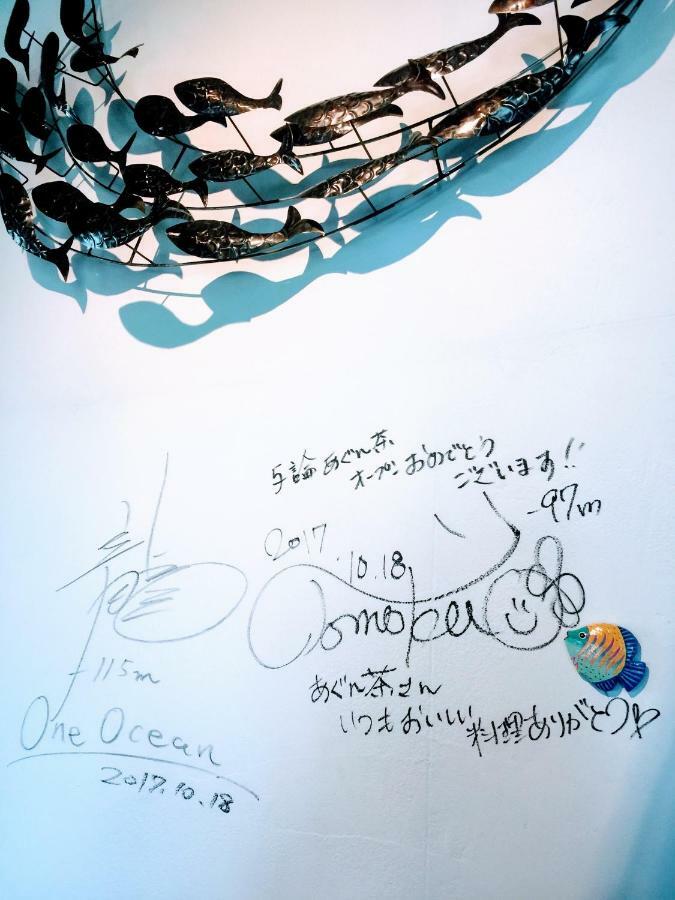 与論あぐん茶
オープンおめでとう
ございます!!
-97m
2017.10.18
Tomoka
あぐん茶さん
いつもおいしい
料理ありがとう
龍
-115m
One Ocean
2017.10.18